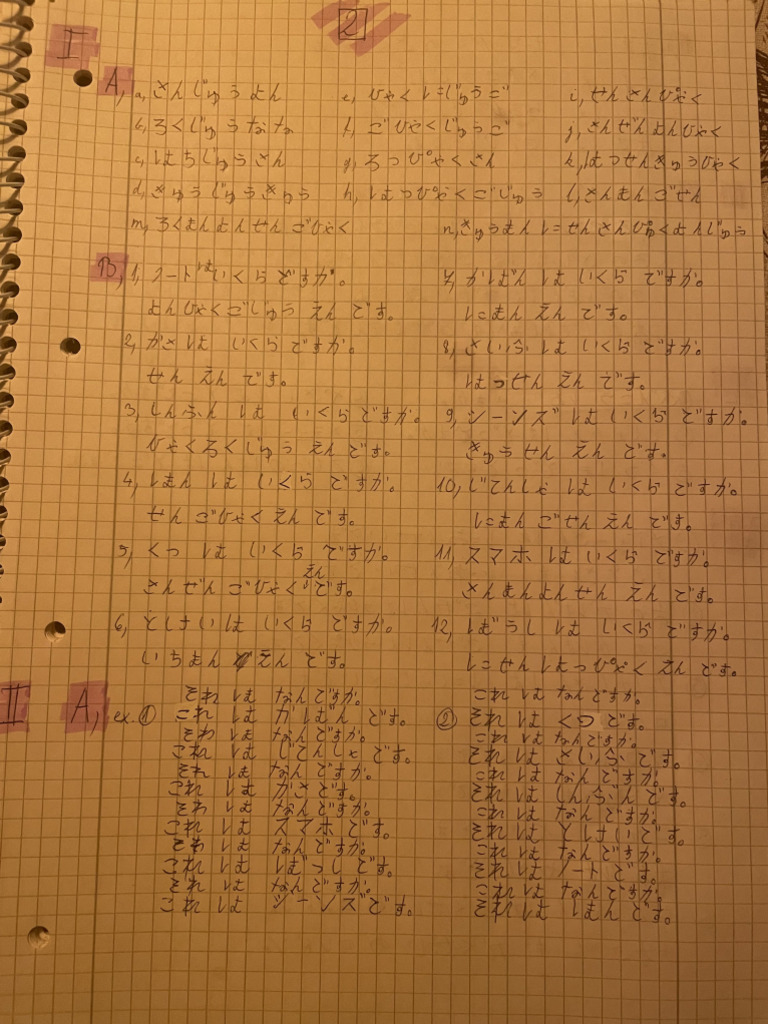 2
I A, a, さんじゅうよん e, ひゃくにじゅうご i, せんさんびゃく
b, ろくじゅうなな f, ごひゃくじゅうご j, さんぜんよんひゃく
c, はちじゅうさん g, ろっぴゃくさん k, はっせんきゅうひゃく
d, きゅうじゅうきゅう h, はっぴゃくごじゅう l, さんまんごせん
m, ろくまんよんせんごひゃく n, きゅうまんにせんさんびゃくよんじゅう
B, 1, ノートはいくらですか。 7, かばんはいくらですか。
よんひゃくごじゅうえんです。 にまんえんです。
2, かさはいくらですか。 8, さいふはいくらですか。
せんえんです。 はっせんえんです。
3, しんぶんはいくらですか。 9, ジーンズはいくらですか。
ひゃくろくじゅうえんです。 きゅうせんえんです。
4, ほんはいくらですか。 10, じてんしゃはいくらですか。
せんごひゃくえんです。 にまんごせんえんです。
5, くつはいくらですか。 11, スマホはいくらですか。
さんぜんごひゃくえんです。 さんまんよんせんえんです。
6, とけいはいくらですか。 12, ぼうしはいくらですか。
いちまんえんです。 にせんはっぴゃくえんです。
II A, ex. ① それはなんですか。
これはかばんです。
それはなんですか。
これはじてんしゃです。
それはなんですか。
これはかさです。
それはなんですか。
これはスマホです。
それはなんですか。
これはぼうしです。
それはなんですか。
これはジーンズです。
② これはなんですか。
それはくつです。
これはなんですか。
それはさいふです。
これはなんですか。
それはしんぶんです。
これはなんですか。
それはとけいです。
これはなんですか。
それはノートです。
これはなんですか。
それはほんです。